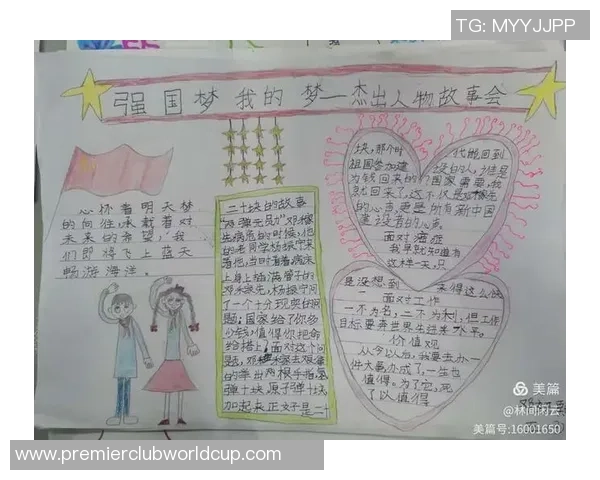 TG: MYYJJPP
强国梦 我的 梦—杰出人物故事会
心怀着明天梦
的向往,承载着对
未来的希望,我
们即将飞上蓝天
畅游海洋。
二十块的故事
"两弹元勋"邓稼
先病危的时候,他
的老同学杨振宁来
看他,当时看着病床
上身上插满管子的
邓稼先,杨振宁问
了一个十分现实的问
题:国家给了你多
少钱,值得你把命
给搭上,面对这个问
题,邓稼先艰难
的举出两根手指氢
弹十块,原子弹十块
加起来正好是二十
块,那个时代能回到
祖国参加建设的人,谁是
为钱回来的?国家需要,我
就回来了,这不仅是邓稼先
的心声更是所有新中国
建设者的心声
面对癌症
我早就知道有
这样一天,只
是没想到 来得这么快
面对工作
一不为名,二不为利,但工作
目标要奔世界先进水平。
价值观
从今以后,我要去办一
件大事,办成了,一生也
值得。为了它,死
了以值得
美篇
@林间闲云
美篇号:16001650
www.premierclubworldcup.com